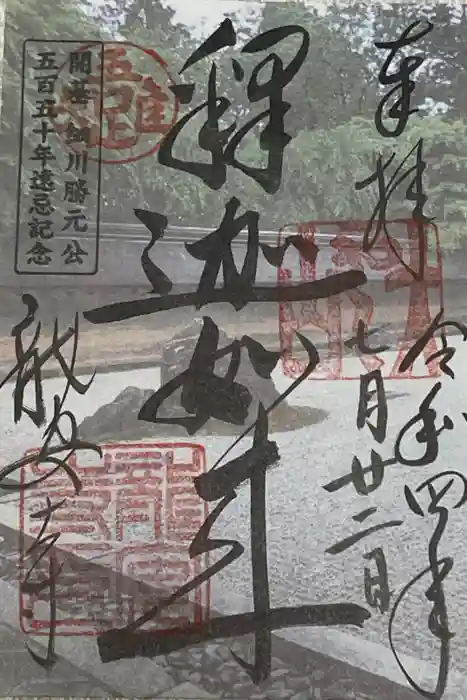 奉拝
令和四年
七月廿二日
釋迦如来
開基 細川勝元公
五百五十年遠忌記念
龍安寺